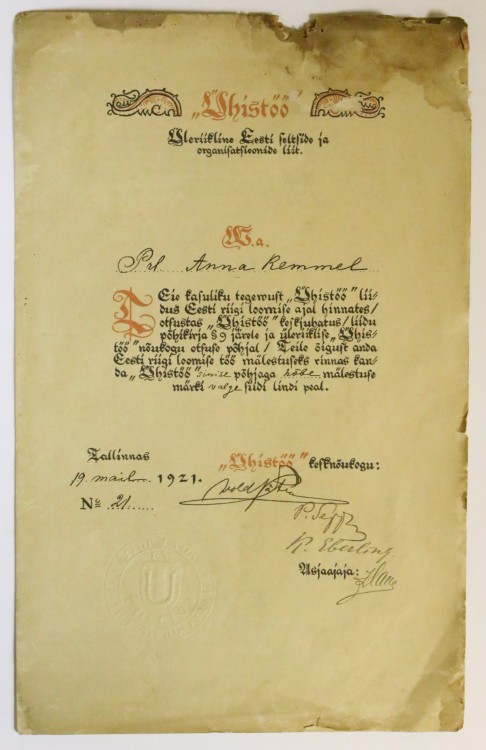 „Ühistöö”
Üleriikline Eesti seltside ja
organisatsioonide liit.
W. a.
Prl. Anna Remmel
Teie kasuliku tegewust „Ühistöö” lii-
dus Eesti riigi loomise ajal hinnates/
otsustas „Ühistöö” keskjuhatus/ liidu
põhikirja § 9 järele ja üleriiklise „Ühis-
töö” nõukogu otsuse põhjal/ Teile õigust anda
Eesti riigi loomise töö mälestuseks rinnas kan-
da „Ühistöö” sinise põhjaga hõbe mälestuse
märki valge siidi lindi peal.
Tallinnas
„Ühistöö” kesknõukogu:
19. mail 1921.
№ 21.
P. Sepp
K. Eberling
Asjaajaja:
U